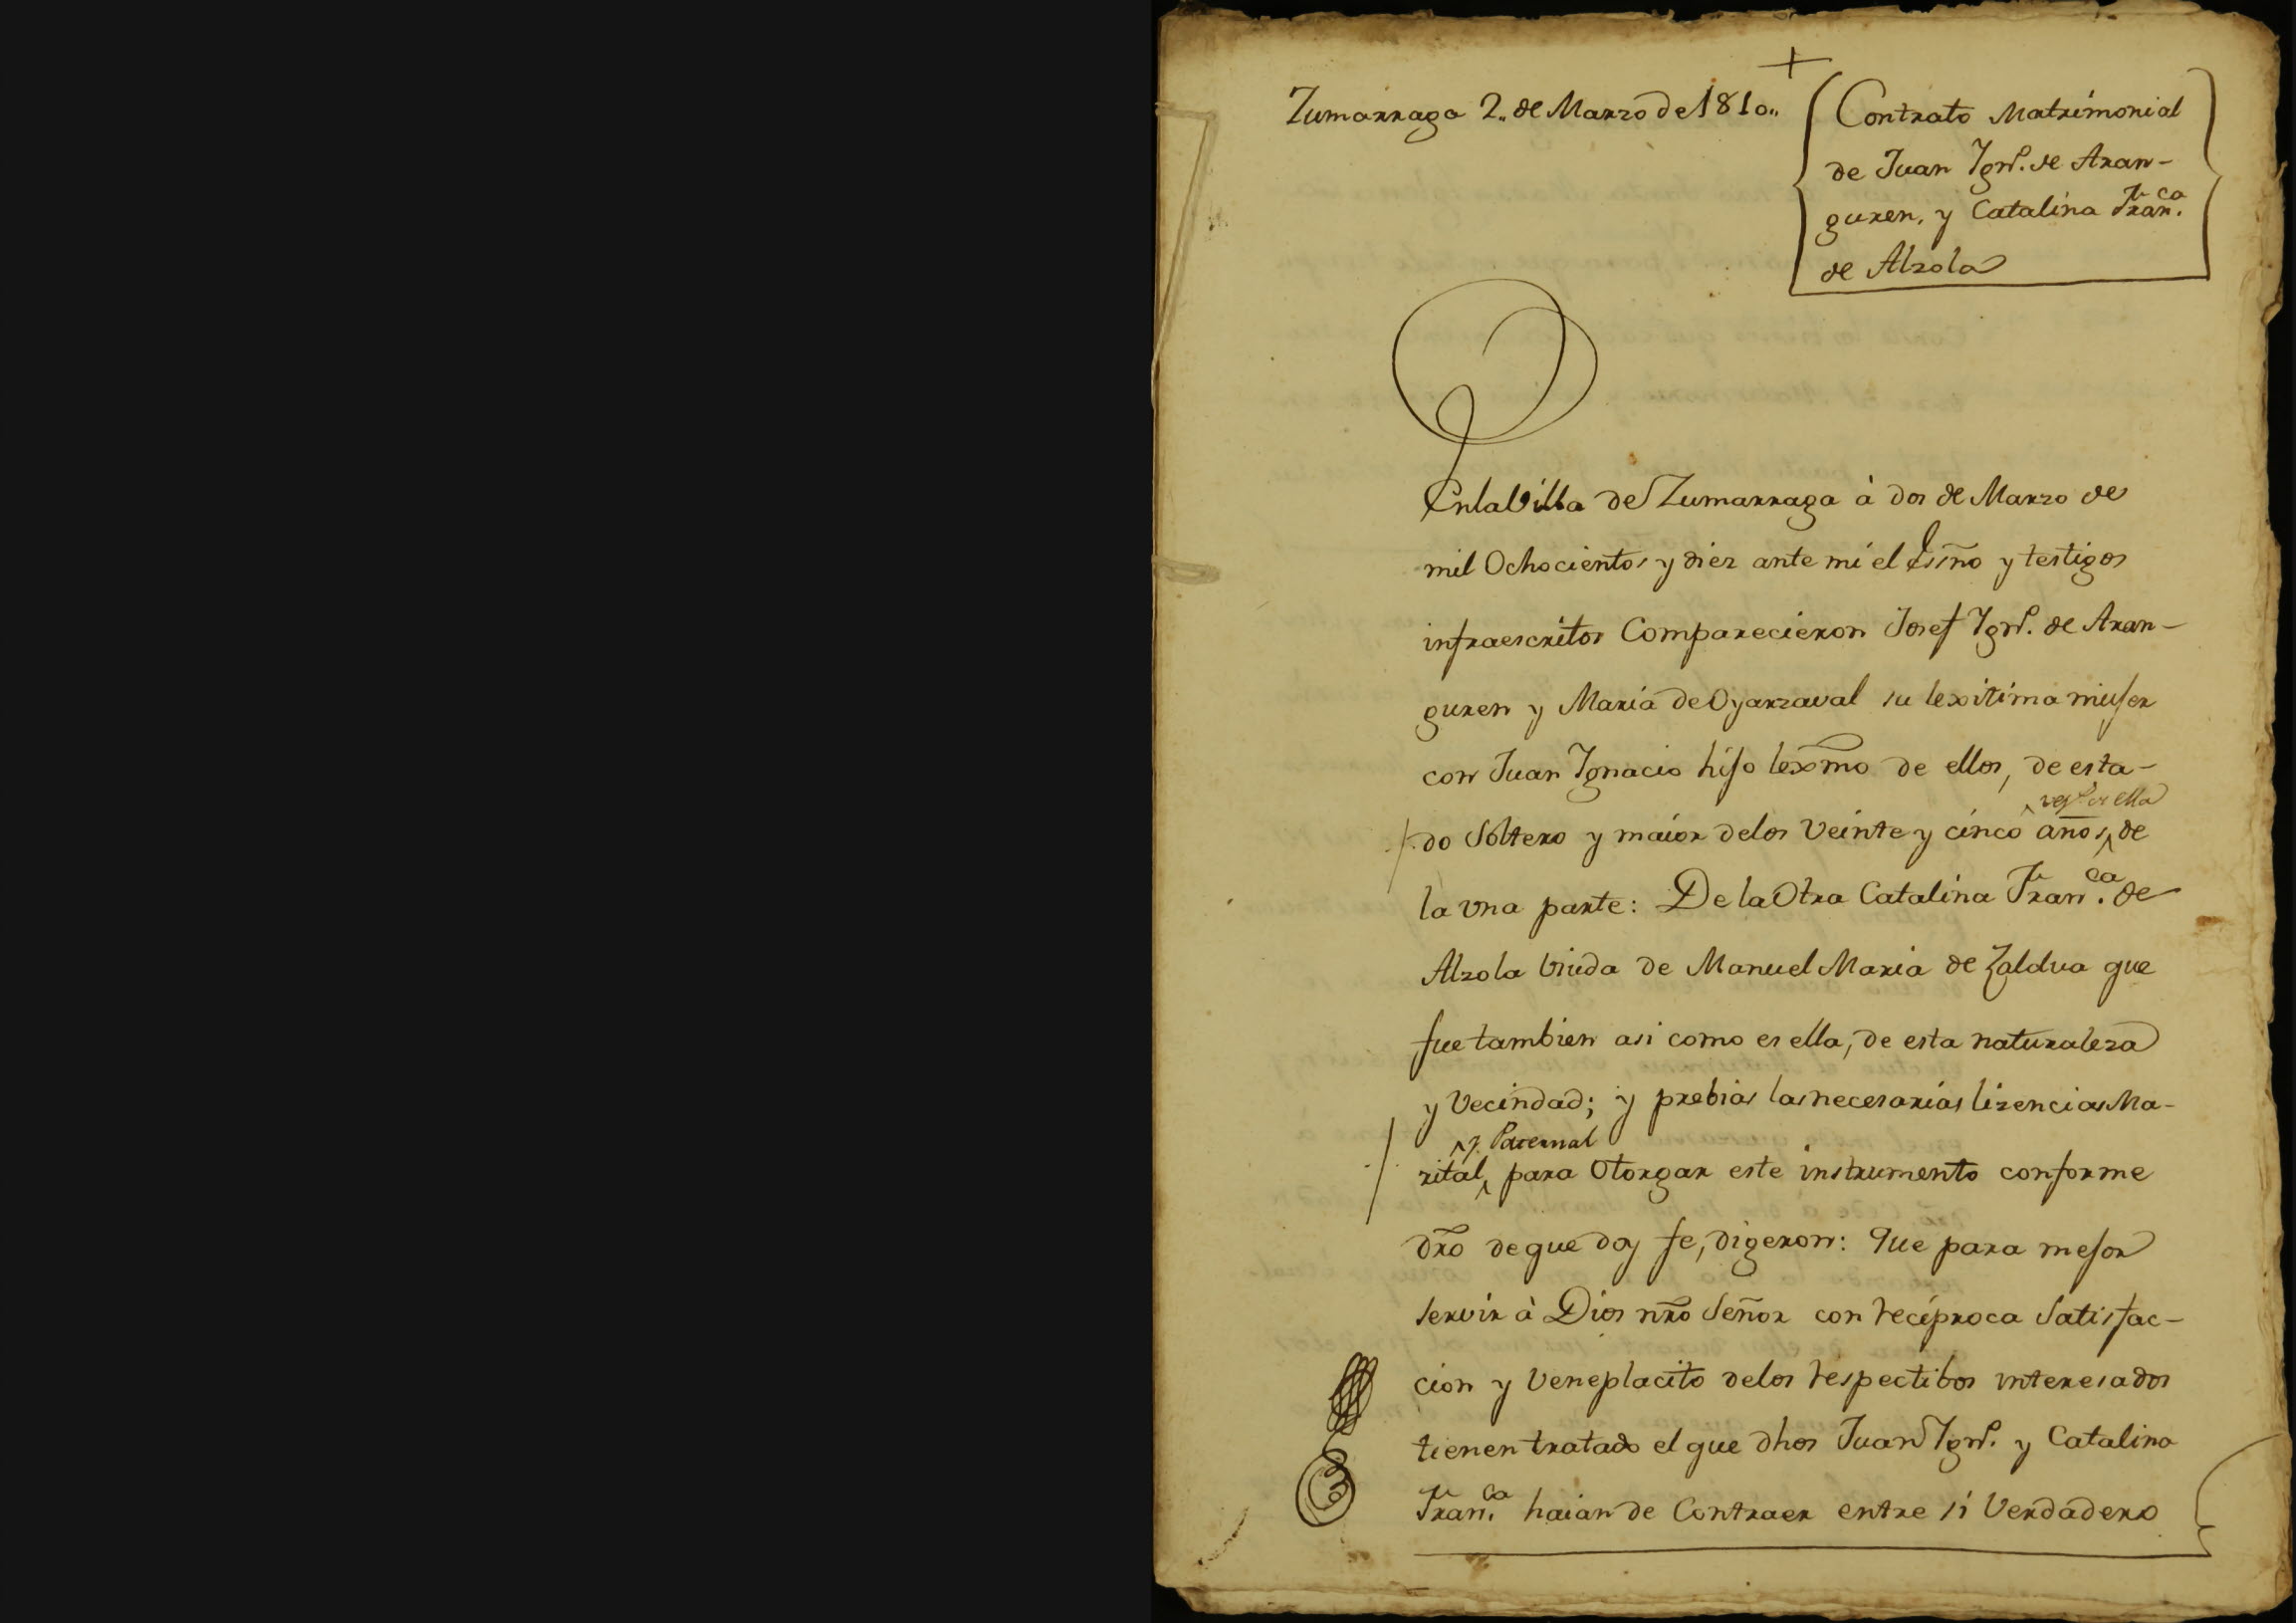 +
Zumarraga 2,, de Marzo de 1810,,
Contrato Matrimonial
de Juan Ygnº. de Aran-
guren, y Catalina Franca.
de Alzola
En la Villa de Zumarraga à dos de Marzo de
mil Ochocientos y diez ante mi el Essño y testigos
infraescritos Comparecieron Josef Ygnº. de Aran-
guren y Maria de Oyarzaval su lexitima mujer
con Juan Ygnacio hijo lexmo de ellos, de esta-
do Soltero y maior de los Veinte y cinco años, de
la una parte: De la Otra Catalina Franca. de
Alzola Viuda de Manuel Maria de Zaldua que
fue tambien asi como es ella, de esta naturaleza
y Vecindad; y prebias las necesarias lizencias Ma-
y Paternal
rital, para Otorgar este instrumento conforme
dro de que doy fe, digeron: Que para mejor
servir à Dios nro Señor con reciproca Satisfac-
cion y Veneplacito de los respectibos interesados
tienen tratado el que dhos Juan Ygnº. y Catalina
Franca. haian de Contraer entre si Verdadero